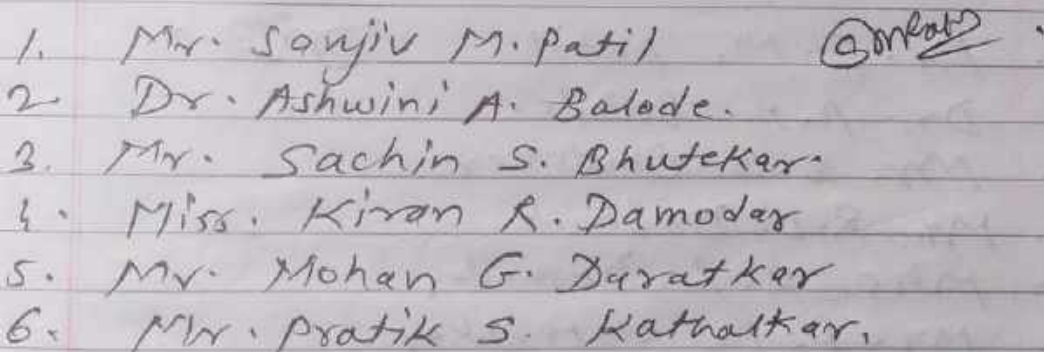 1. Mr. Sanjiv M. Patil
2. Dr. Ashwini A. Balode.
3. Mr. Sachin S. Bhutekar.
4. Miss. Kiran R. Damodar
5. Mr. Mohan G. Daratkar
6. Mr. Pratik S. Kathalkar.